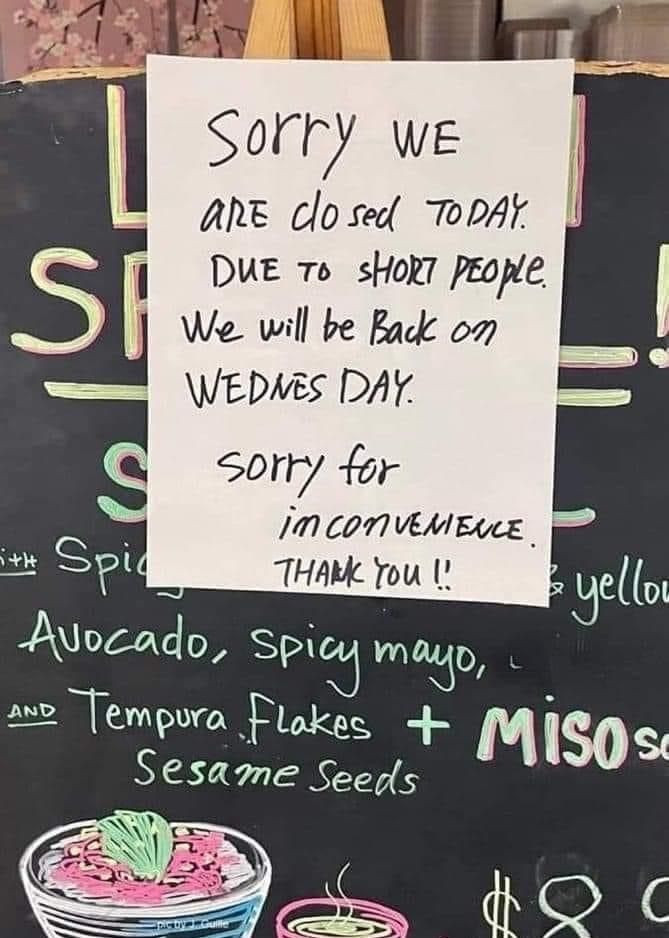 Sorry WE
ARE closed TODAY.
DUE TO SHORT PEOPLE.
We will be Back on
WEDNESDAY.
sorry for
inconvenience.
THANK YOU !!
L
SP !
S
Spic & yellow
Avocado, spicy mayo,
AND Tempura Flakes + MISO
Sesame Seeds
$8
pic by J. Guille